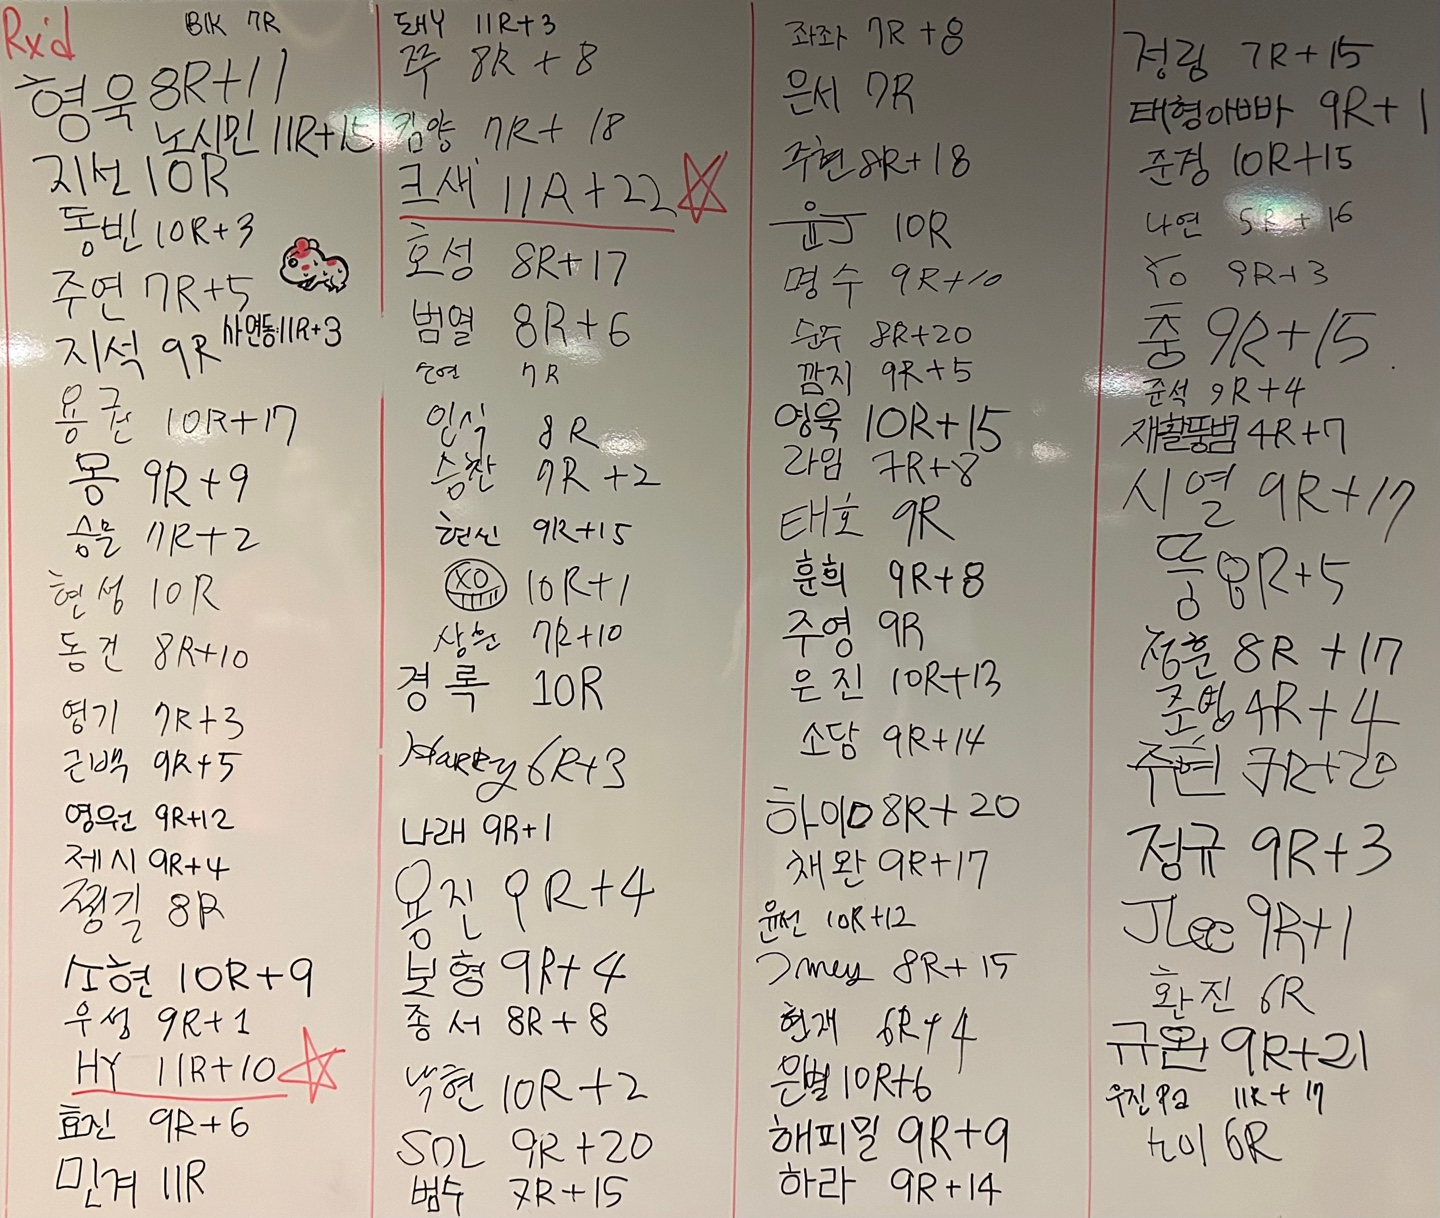 Rx'd
BIK 7R
형욱 8R+11
노시민 11R+15
지선 10R
동빈 10R+3
주연 7R+5
지석 9R
사연동 11R+3
용권 10R+17
몽 9R+9
승물 7R+2
현성 10R
동건 8R+10
영기 7R+3
근백 9R+5
영원 9R+12
제시 9R+4
쩡길 8R
소현 10R+9
우성 9R+1
HY 11R+10
효진 9R+6
민겨 11R
11R+3
쭈 8R+8
김양 7R+18
크새 11R+22
호성 8R+17
범열 8R+6
7R
인식 8R
승찬 7R+2
현신 9R+15
XO 10R+1
상현 7R+10
경록 10R
Harry 6R+3
나래 9R+1
용진 9R+4
보형 9R+4
종서 8R+8
낙현 10R+2
SOL 9R+20
범수 7R+15
좌좌 7R+8
은서 7R
주현 8R+18
윤J 10R
명수 9R+10
순주 8R+20
깜지 9R+5
영욱 10R+15
라임 7R+8
태호 9R
훈희 9R+8
주영 9R
은진 10R+13
소담 9R+14
하이D 8R+20
채완 9R+17
윤선 10R+12
Jmey 8R+15
현재 6R+4
은별 10R+6
해피밀 9R+9
하라 9R+14
정림 7R+15
태형아빠 9R+1
준경 10R+15
나연 5R+16
YO 9R+3
충 9R+15
준석 9R+4
재활뚱범 4R+7
시열 9R+17
뚱 8R+5
정훈 8R+17
준영 4R+4
주현 7R+20
정규 9R+3
JLee 9R+1
환진 6R
규완 9R+21
우진Pa 11R+17
누이 6R